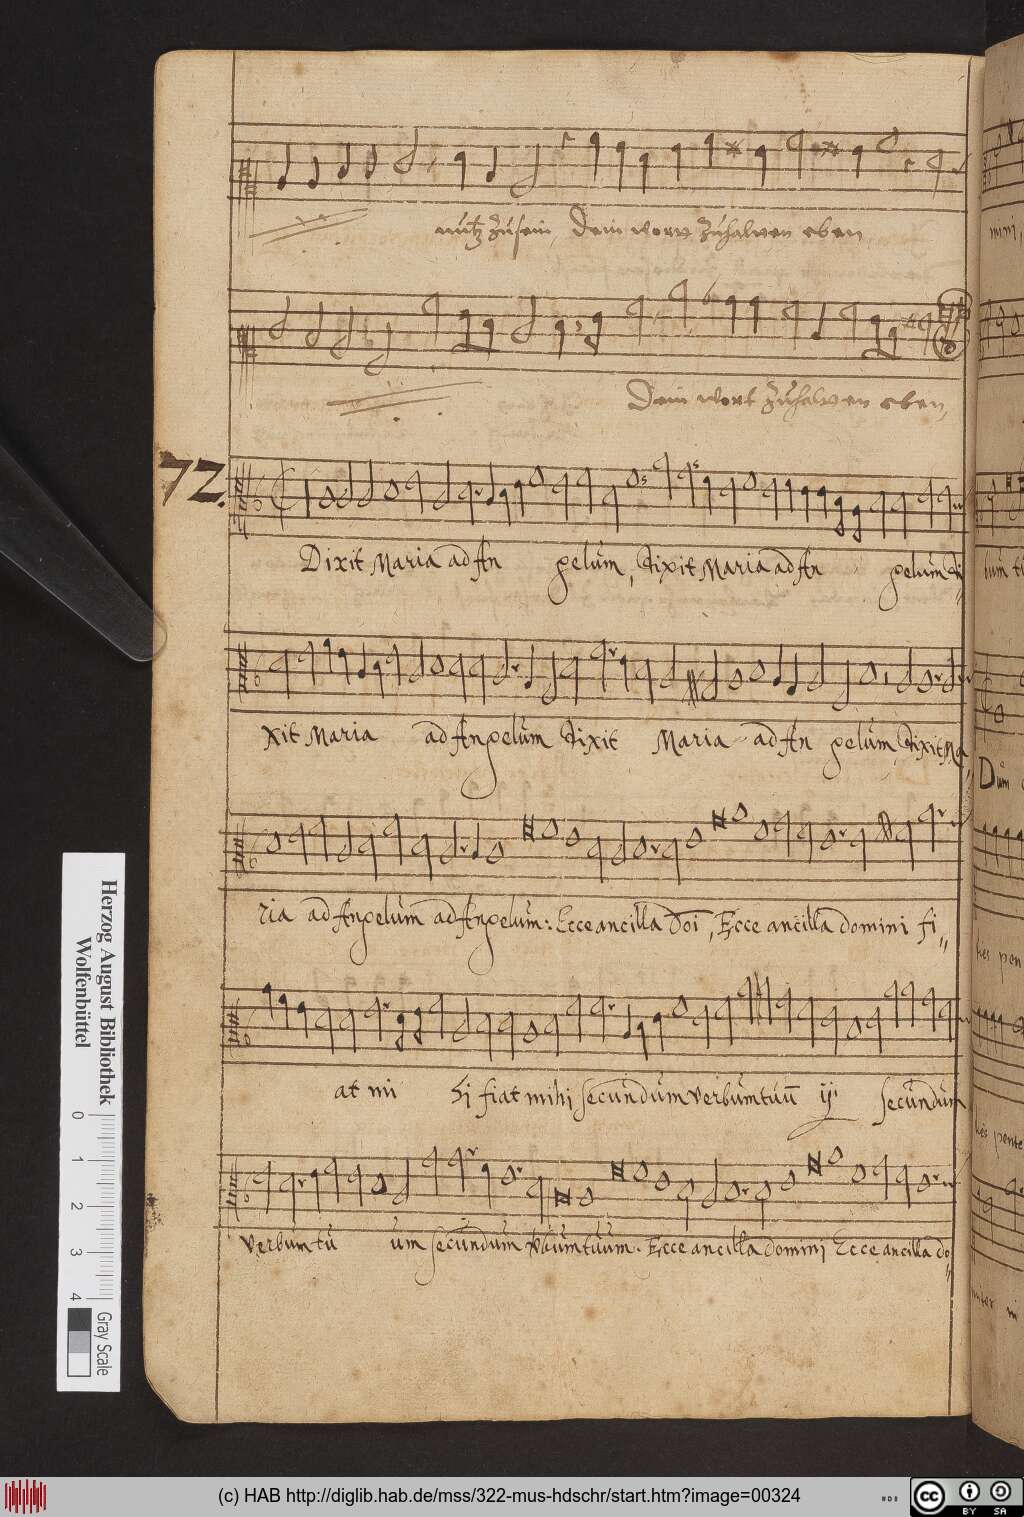 nutz zu sein, Dein wort zuhalten eben
Dein wort zuhalten eben,
72.
Dixit Maria ad An gelum, Dixit Maria ad An gelum Di
xit Maria ad Angelum Dixit Maria ad An gelum, Dixit Ma
ria ad Angelum ad Angelum: Ecce ancilla Dni, Ecce ancilla domini fi
at mi hi fiat mihi secundum verbum tuum ij secundum
verbum tu um secundum vbum tuum. Ecce ancilla domini Ecce ancilla do
mini,
Dum
Herzog August Bibliothek
Wolfenbüttel
0 1 2 3 4
Gray Scale
(c) HAB http://diglib.hab.de/mss/322-mus-hdschr/start.htm?image=00324
cc BY SA